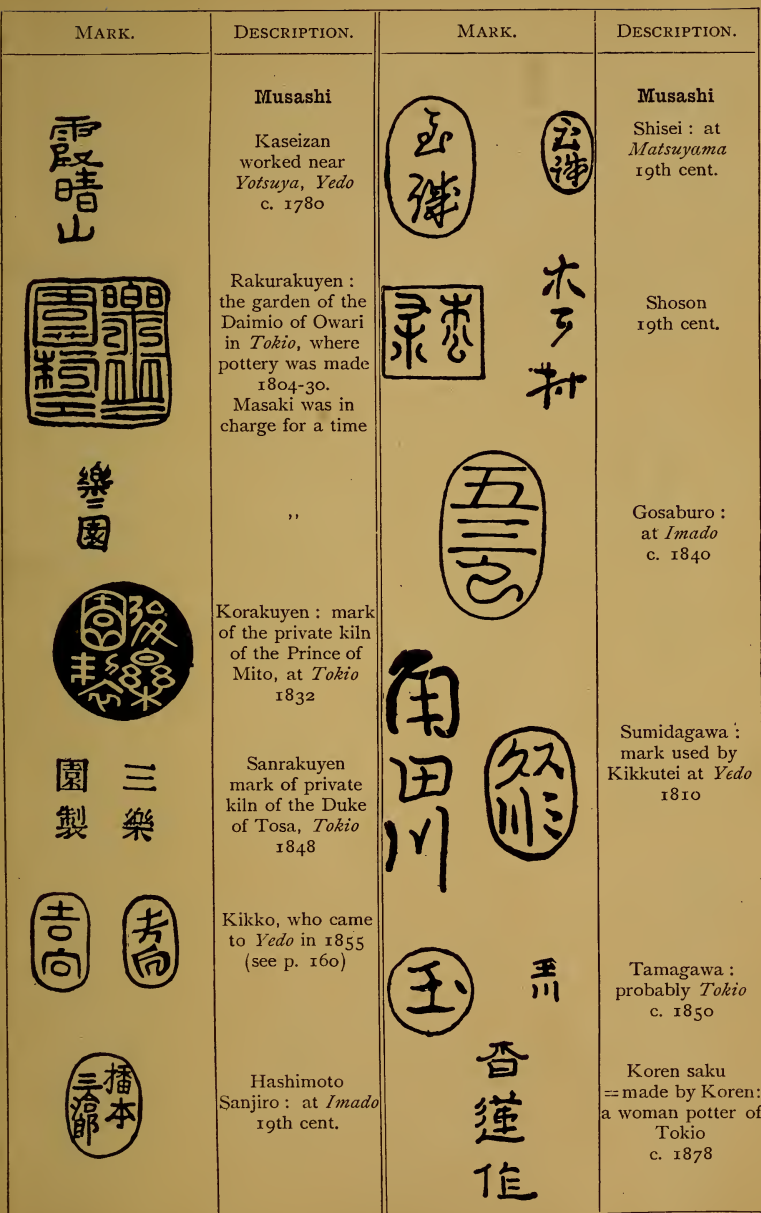 MARK.
DESCRIPTION.
Musashi
霞晴山
Kaseizan
worked near
Yotsuya, Yedo
c. 1780
Rakurakuyen :
the garden of the
Daimio of Owari
in Tokio, where
pottery was made
1804-30.
Masaki was in
charge for a time
樂〻園
,,
後樂
園製
Korakuyen : mark
of the private kiln
of the Prince of
Mito, at Tokio
1832
三樂
園製
Sanrakuyen
mark of private
kiln of the Duke
of Tosa, Tokio
1848
吉向
吉向
Kikko, who came
to Yedo in 1855
(see p. 160)
橋本
三治郎
Hashimoto
Sanjiro : at Imado
19th cent.
MARK.
DESCRIPTION.
Musashi
Shisei : at
Matsuyama
19th cent.
Shoson
19th cent.
五三
Gosaburo :
at Imado
c. 1840
角田川
Sumidagawa :
mark used by
Kikkutei at Yedo
1810
玉
玉川
Tamagawa :
probably Tokio
c. 1850
香蓮作
Koren saku
=made by Koren:
a woman potter of
Tokio
c. 1878